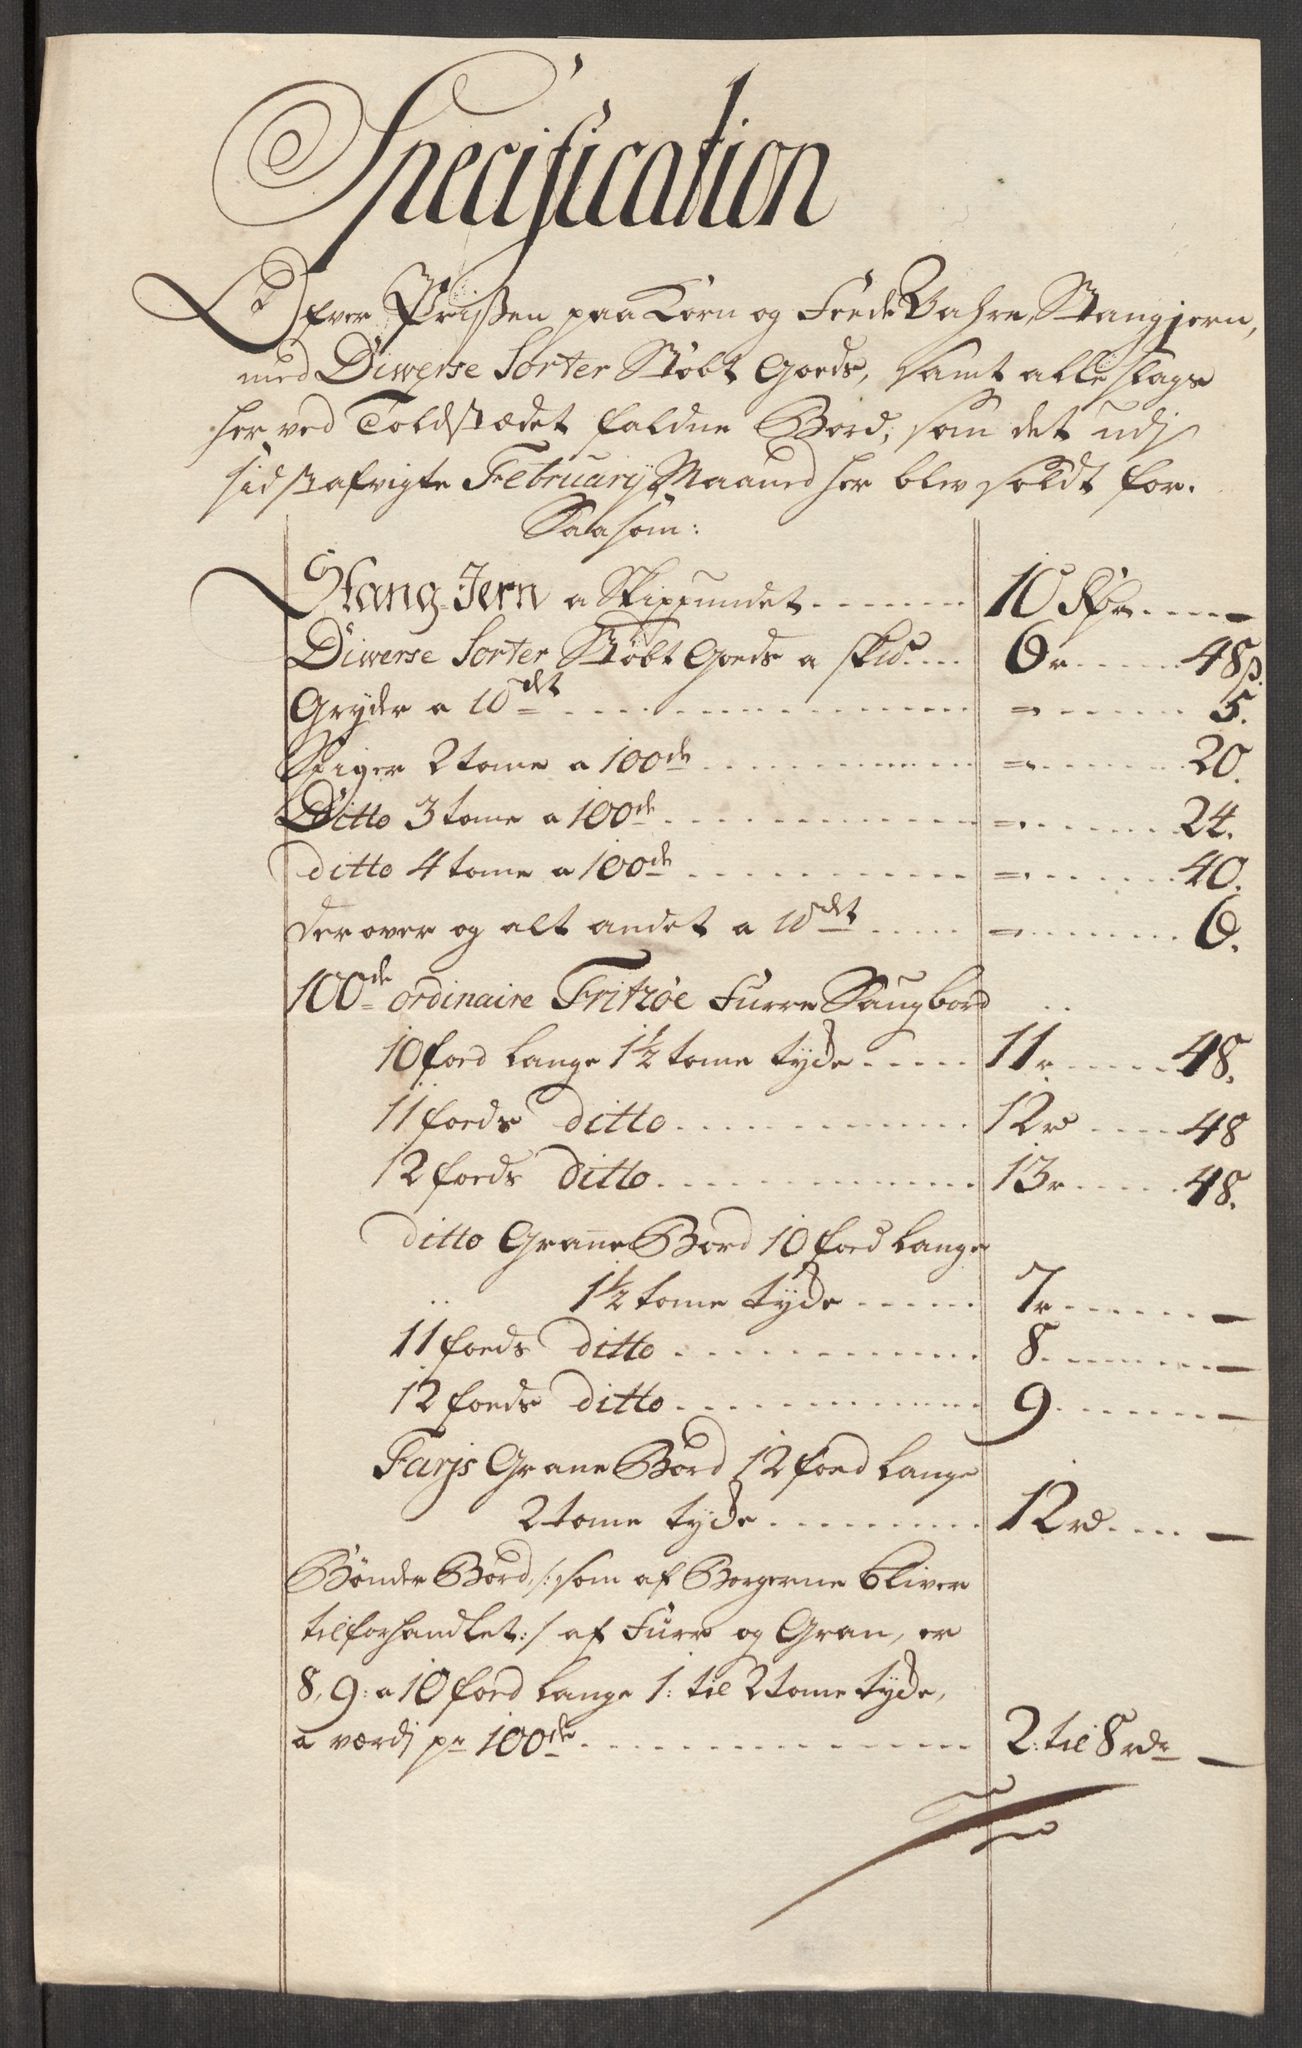 Specification
Ofver Prisßen paa Korn og Fede Vahre, Stangjern,
med Diwerse Sorter Støbt Goeds, samt alle slags
her ved Toldstædet faldne Bord, som det udj
sidst afvigte February Maaned her blev soldt for.
Saasom:
Stang-Jern a Skippundet ...... 10 Rdr .... —
Diwerse Sorter Støbt Goeds a skd. ... 6 r ..... 48 ß.
Gryder a 10 det ...... = ...... 5.
Spiger 2 tome a 100de ...... = ...... 20.
Ditto 3 tome a 100de ...... = ...... 24.
ditto 4 tome a 100de ...... = ...... 40.
der over og alt andet a 10 det ..... = ...... 6.
100de ordinaire Fritzøe Furre Saugbord
10 foed lange 1½ tome tyde ..... 11 r ..... 48.
11 foeds ditto ...... 12 rd .... 48
12 foeds ditto ...... 13 r ..... 48.
ditto Granne Bord 10 foed lange
1½ tome tyde ..... 7 r ...... —
11 foeds ditto ...... 8. ...... —
12 foeds ditto ...... 9 ...... —
Farjs Grane Bord 12 foed lange
2 tome tyde ...... 12 rd .... —
Bønder Bord, /: som af Borgerne bliver
tilforhandlet :/ af Furr og Gran, er
8, 9: a 10 foed lange 1: til 2 tome tyde,
a værdj pr 100de ...... 2: til 8 rdr —